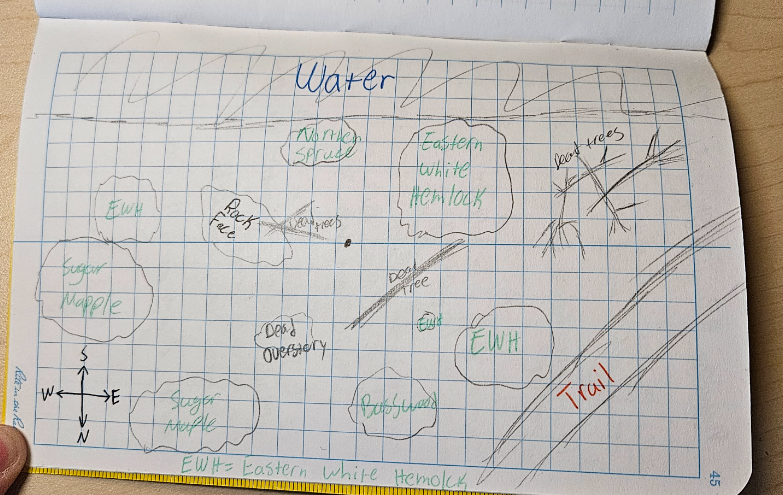 Water
Northern
Spruce
Eastern
White
Hemlock
Dead trees
EWH
Rock
Face
Dead trees
Sugar
Mapple
Dead
tree
EWH
EWH
Dead
Overstory
S
W E
N
Sugar
Maple
Basswood
Trail
45
EWH= Eastern White Hemolck